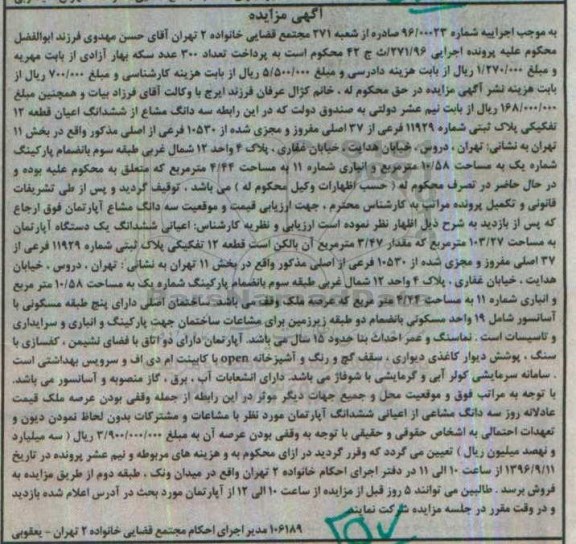 آگهی مزایده
به موجب اجراییه شماره 96/00023 صادره از شعبه 271 مجتمع قضایی خانواده 2 تهران آقای حسن مهدوی فرزند ابوالفضل
محکوم علیه پرونده اجرایی 271/96/ث ج 42 محکوم است به پرداخت تعداد 300 عدد سکه بهار آزادی از بابت مهریه
و مبلغ 1/270/000 ریال از بابت هزینه دادرسی و مبلغ 5/500/000 ریال از بابت هزینه کارشناسی و مبلغ 700/000 ریال از
بابت هزینه نشر آگهی مزایده در حق محکوم له ، خانم کژال عرفان فرزند ایرج با وکالت آقای فرزاد بیات و همچنین مبلغ
168/000/000 ریال از بابت نیم عشر دولتی به صندوق دولت که در این رابطه سه دانگ مشاع از ششدانگ اعیان قطعه 12
تفکیکی پلاک ثبتی شماره 11929 فرعی از 37 اصلی مفروز و مجزی شده از 10530 فرعی از اصلی مذکور واقع در بخش 11
تهران به نشانی: تهران ، دروس ، خیابان هدایت ، خیابان غفاری ، پلاک 4 واحد 12 شمال غربی طبقه سوم بانضمام پارکینگ
شماره یک به مساحت 10/58 مترمربع و انباری شماره 11 به مساحت 4/44 مترمربع که متعلق به محکوم علیه بوده و
در حال حاضر در تصرف محکوم له ( حسب اظهارات وکیل محکوم له ) می باشد ، توقیف گردید و پس از طی تشریفات
قانونی و تکمیل پرونده مراتب به کارشناس محترم ، جهت ارزیابی قیمت و موقعیت سه دانگ مشاع آپارتمان فوق ارجاع
که پس از بازدید به شرح ذیل اظهار نظر نموده است ارزیابی و نظریه کارشناس: اعیانی ششدانگ یک دستگاه آپارتمان
به مساحت 103/27 مترمربع که مقدار 3/47 مترمربع آن بالکن است قطعه 12 تفکیکی پلاک ثبتی شماره 11929 فرعی از
37 اصلی مفروز و مجزی شده از 10530 فرعی از اصلی مذکور واقع در بخش 11 تهران به نشانی : تهران ، دروس ، خیابان
هدایت ، خیابان غفاری ، پلاک 4 واحد 12 شمال غربی طبقه سوم بانضمام پارکینگ شماره یک به مساحت 10/58 متر مربع
و انباری شماره 11 به مساحت 4/24 متر مربع که عرصه ملک وقف می باشد ساختمان اصلی دارای پنج طبقه مسکونی با
آسانسور شامل 19 واحد مسکونی بانضمام دو طبقه زیرزمین برای مشاعات ساختمان جهت پارکینگ و انباری و سرایداری
و تاسیسات است . نماسنگ و عمر احداث بنا حدود 15 سال می باشد. آپارتمان دارای دو اتاق با فضای نشیمن ، کفسازی با
سنگ ، پوشش دیوار کاغذی دیواری ، سقف گچ و رنگ و آشپزخانه open با کابینت ام دی اف و سرویس بهداشتی است
. سامانه سرمایشی کولر آبی و گرمایشی با شوفاژ می باشد. دارای انشعابات آب ، برق ، گاز منصوبه و آسانسور می باشد.
با توجه به مراتب فوق و موقعیت محل و جمیع جهات دیگر موثر در این رابطه از جمله وقفی بودن عرصه ملک قیمت
عادلانه روز سه دانگ مشاعی از اعیانی ششدانگ آپارتمان مورد نظر با مشاعات و مشترکات بدون لحاظ نمودن دیون و
تعهدات احتمالی به اشخاص حقوقی و حقیقی با توجه به وقفی بودن عرصه آن به مبلغ 3/900/000/000 ریال ( سه میلیارد
و نهصد میلیون ریال ) تعیین می گردد که وقرر گردید در ازای محکوم به و هزینه های مربوطه و نیم عشر پرونده در تاریخ
1396/9/11 از ساعت 10 الی 11 در دفتر اجرای احکام خانواده 2 تهران واقع در میدان ونک ، طبقه دوم از طریق مزایده به
فروش برسد . طالبین می توانند 5 روز قبل از مزایده از ساعت 10 الی 12 از آپارتمان مورد بحث در آدرس اعلام شده بازدید
و در وقت مقرر در جلسه مزایده شرکت نمایند
106189 مدیر اجرای احکام مجتمع قضایی خانواده 2 تهران - یعقوبی